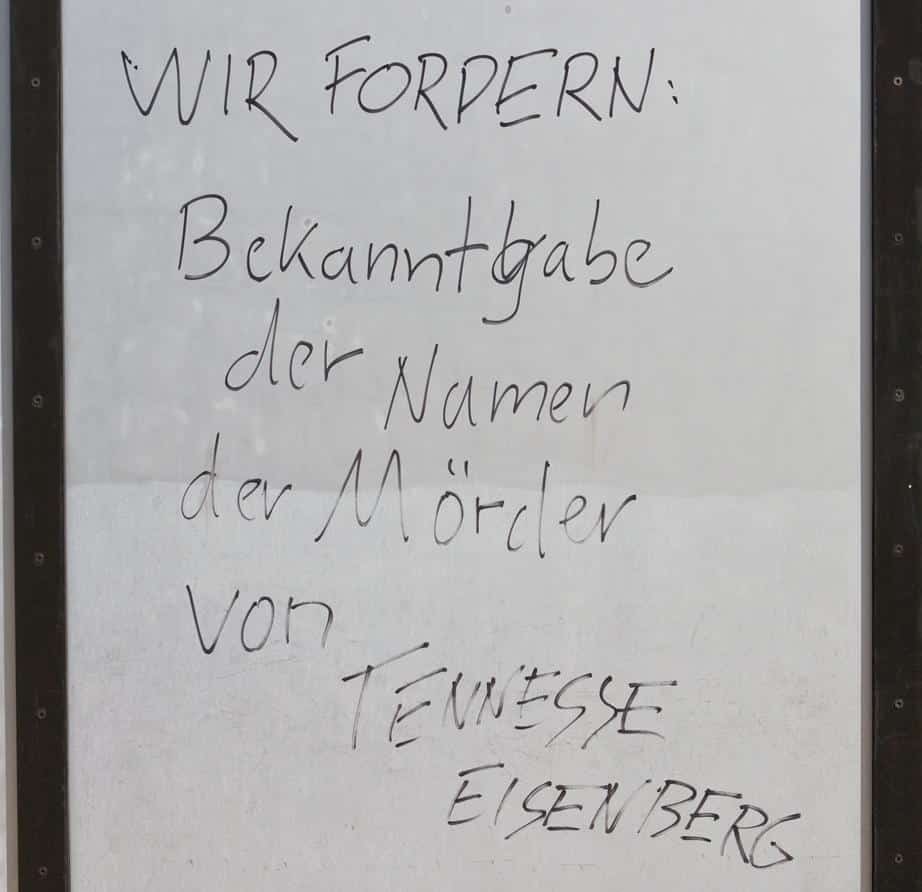 WIR FORDERN:
Bekanntgabe
der Namen
der Mörder
von
TENNESSE
EISENBERG